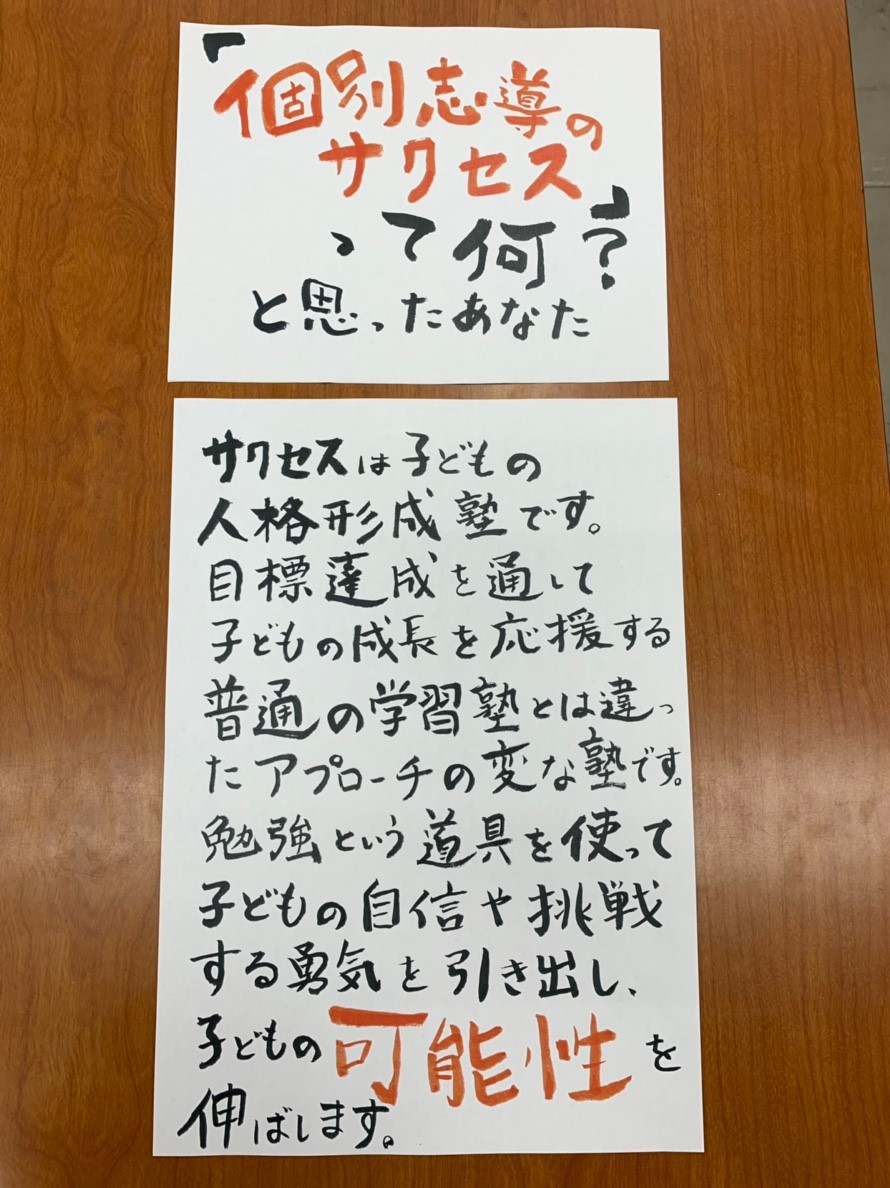 「個別志導の
サクセス
って何?」
と思ったあなた
サクセスは子どもの
人格形成塾です。
目標達成を通して
子どもの成長を応援する
普通の学習塾とは違っ
たアプローチの変な塾です。
勉強という道具を使って
子どもの自信や挑戦
する勇気を引き出し、
子どもの可能性を
伸ばします。